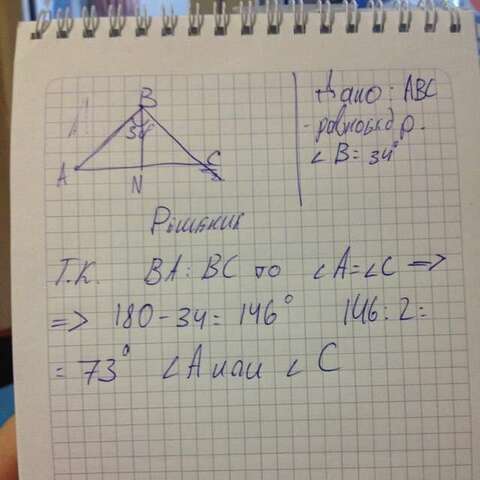 B
34
A
N
C
Дано: ABC
- равнобед р.
∠B = 34°
Решение
Т.К. BA = BC то ∠A = ∠C =>
=> 180 - 34 = 146° 146 : 2 =
= 73° ∠A или ∠C